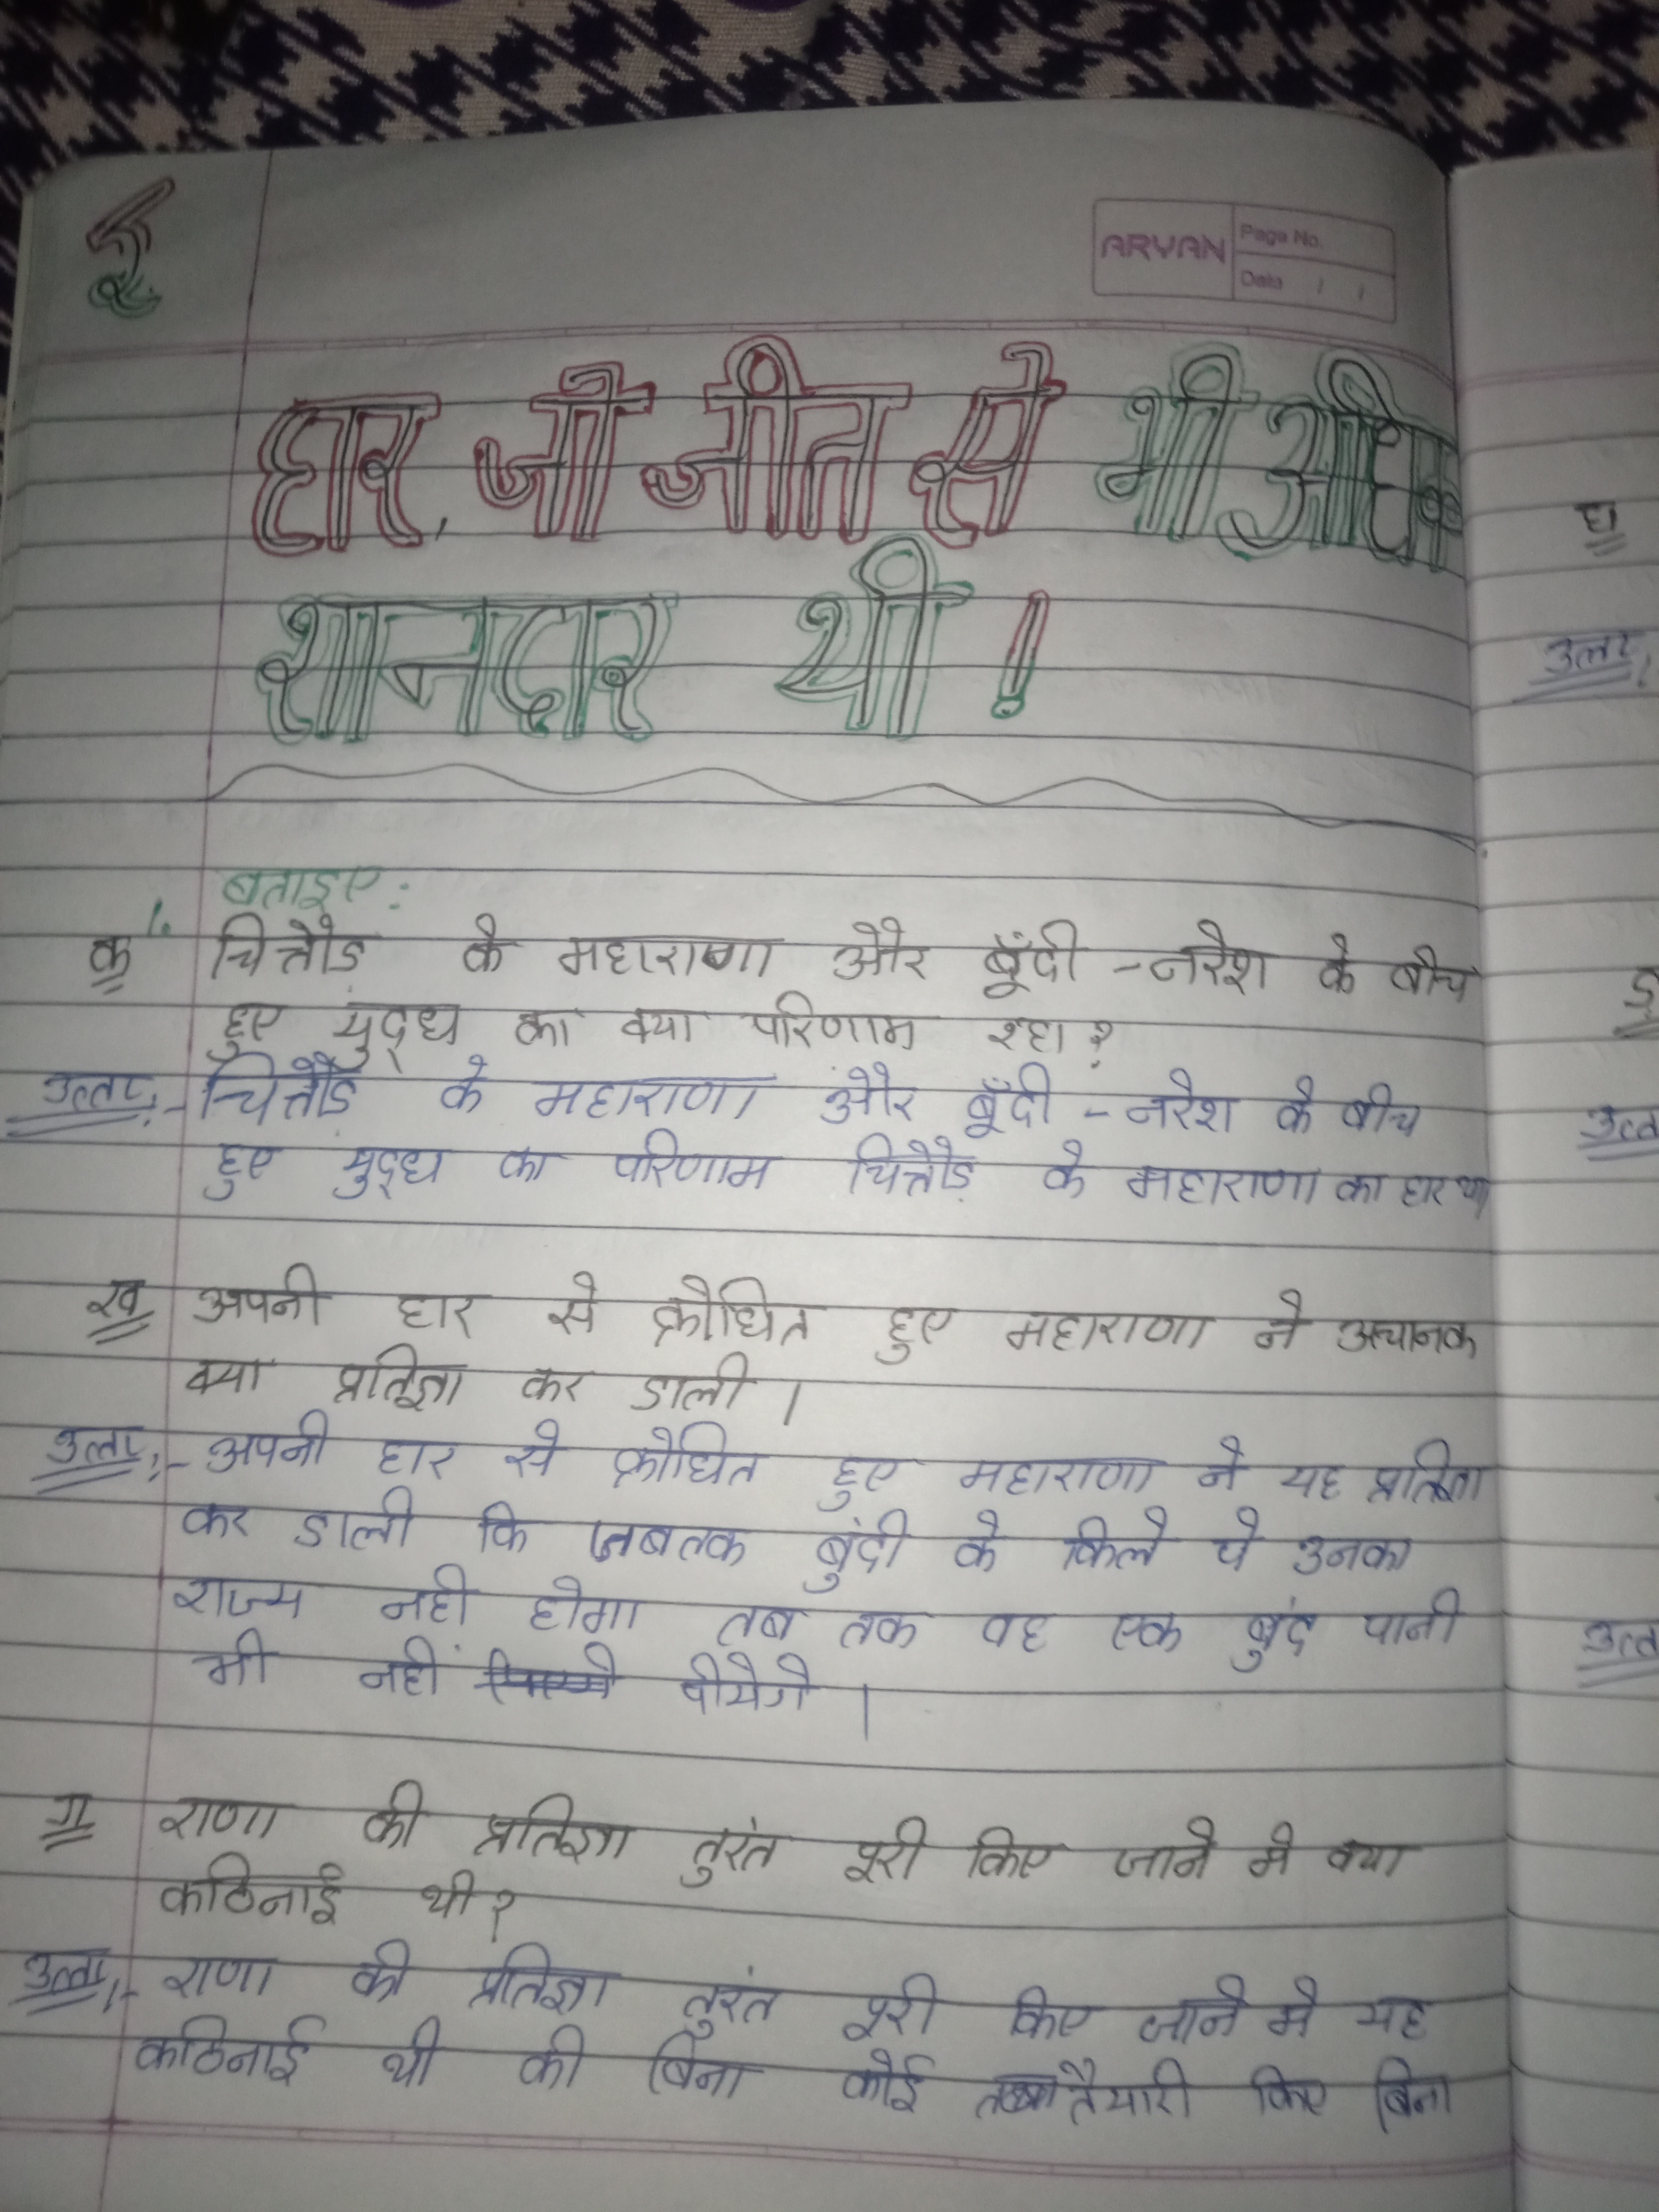 ARYAN Page No.
Date / /
हार, जो जीत से भी अधिक
शानदार थी !
बताइए :
1.
क चित्तौड के महाराणा और बूँदी - नरेश के बीच
हुए युद्ध का क्या परिणाम रहा ?
उत्तर:- चित्तौड के महाराणा और बूँदी - नरेश के बीच
हुए युद्ध का परिणाम चित्तौड़ के महाराणा का हार था
ख अपनी हार से क्रोधित हुए महाराणा ने अचानक
क्या प्रतिज्ञा कर डाली ।
उत्तर:- अपनी हार से क्रोधित हुए महाराणा ने यह प्रतिज्ञा
कर डाली कि जबतक बुंदी के किले पे उनका
राज्य नही होगा तब तक वह एक बुंद पानी
भी नहीं पीयेगे ।
ग राणा की प्रतिज्ञा तुरंत पूरी किए जाने मे क्या
कठिनाई थी ?
उत्तर:- राणा की प्रतिज्ञा तुरंत पूरी किए जाने मे यह
कठिनाई थी की बिना कोई तैयारी किए बिना
घ
उत्तर:
ड
उत्त
उत्त